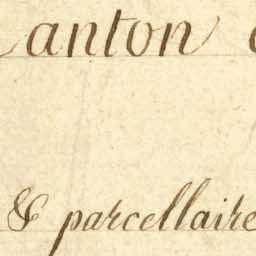 Canton
& parcellaire